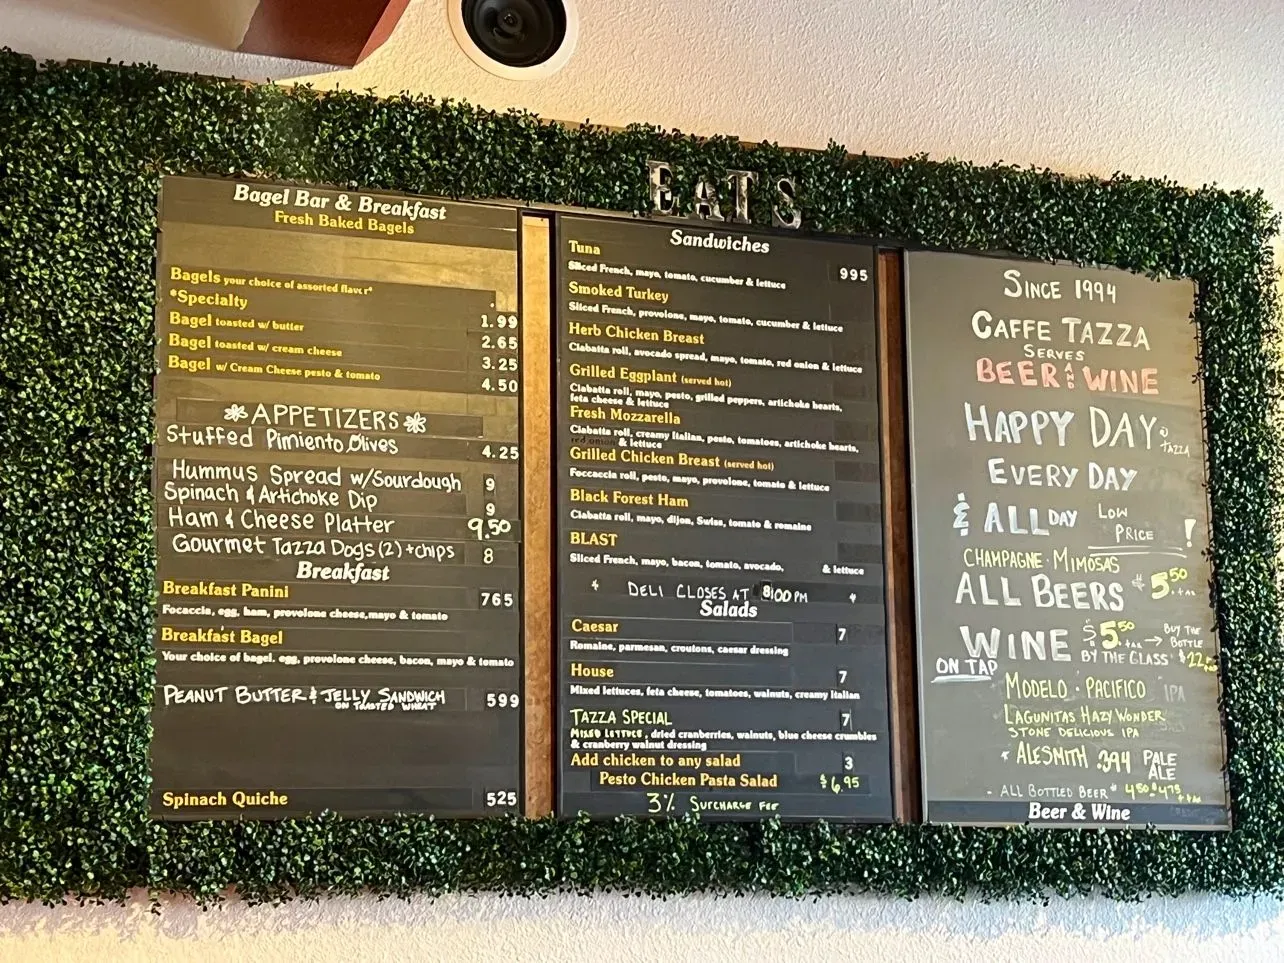 EATS
Bagel Bar & Breakfast
Fresh Baked Bagels
Bagels your choice of assorted flavor*
*Specialty
1.99
Bagel toasted w/ butter
2.65
Bagel toasted w/ cream cheese
3.25
Bagel w/ Cream Cheese pesto & tomato
4.50
APPETIZERS
Stuffed Pimiento Olives 4.25
Hummus Spread w/Sourdough 9
Spinach & Artichoke Dip 9
Ham & Cheese Platter 9.50
Gourmet Tazza Dogs (2) + chips 8
Breakfast
Breakfast Panini 765
Focaccia, egg, ham, provolone cheese, mayo & tomato
Breakfast Bagel
Your choice of bagel. egg, provolone cheese, bacon, mayo & tomato
PEANUT BUTTER & JELLY SANDWICH 599
ON TOASTED WHEAT
Spinach Quiche 525
Sandwiches
Tuna 995
Sliced French, mayo, tomato, cucumber & lettuce
Smoked Turkey
Sliced French, provolone, mayo, tomato, cucumber & lettuce
Herb Chicken Breast
Ciabatta roll, avocado spread, mayo, tomato, red onion & lettuce
Grilled Eggplant (served hot)
Ciabatta roll, mayo, pesto, grilled peppers, artichoke hearts,
feta cheese & lettuce
Fresh Mozzarella
Ciabatta roll, creamy Italian, pesto, tomatoes, artichoke hearts,
red onion & lettuce
Grilled Chicken Breast (served hot)
Foccaccia roll, pesto, mayo, provolone, tomato & lettuce
Black Forest Ham
Ciabatta roll, mayo, dijon, Swiss, tomato & romaine
BLAST
Sliced French, mayo, bacon, tomato, avocado, & lettuce
DELI CLOSES AT 8:00 PM
Salads
Caesar 7
Romaine, parmesan, croutons, caesar dressing
House 7
Mixed lettuces, feta cheese, tomatoes, walnuts, creamy Italian
TAZZA SPECIAL 7
MIXED LETTUCE, dried cranberries, walnuts, blue cheese crumbles
& cranberry walnut dressing
Add chicken to any salad 3
Pesto Chicken Pasta Salad $6.95
3% SURCHARGE FEE
SINCE 1994
CAFFE TAZZA
SERVES
BEER AND WINE
HAPPY DAY @ TAZZA
EVERY DAY
& ALL DAY LOW PRICE !
CHAMPAGNE · MIMOSAS
ALL BEERS $5.50 + tax
WINE $5.50 + tax → BUY THE BOTTLE
BY THE GLASS $22.50
ON TAP
MODELO · PACIFICO IPA
LAGUNITAS HAZY WONDER
STONE DELICIOUS IPA
ALESMITH .394 PALE ALE
- ALL BOTTLED BEER 4.50 - 4.75 + tax
Beer & Wine